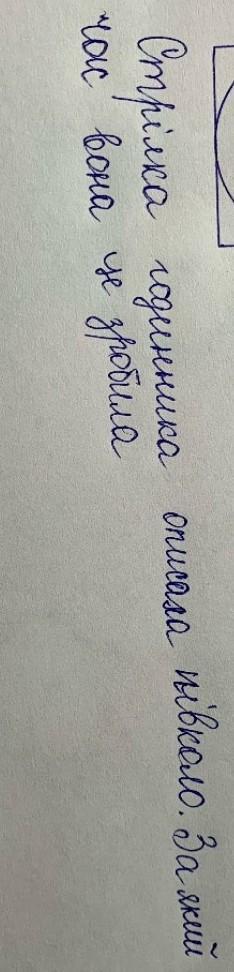 Стрілка годинника описала півколо. За який
час вона це зробила